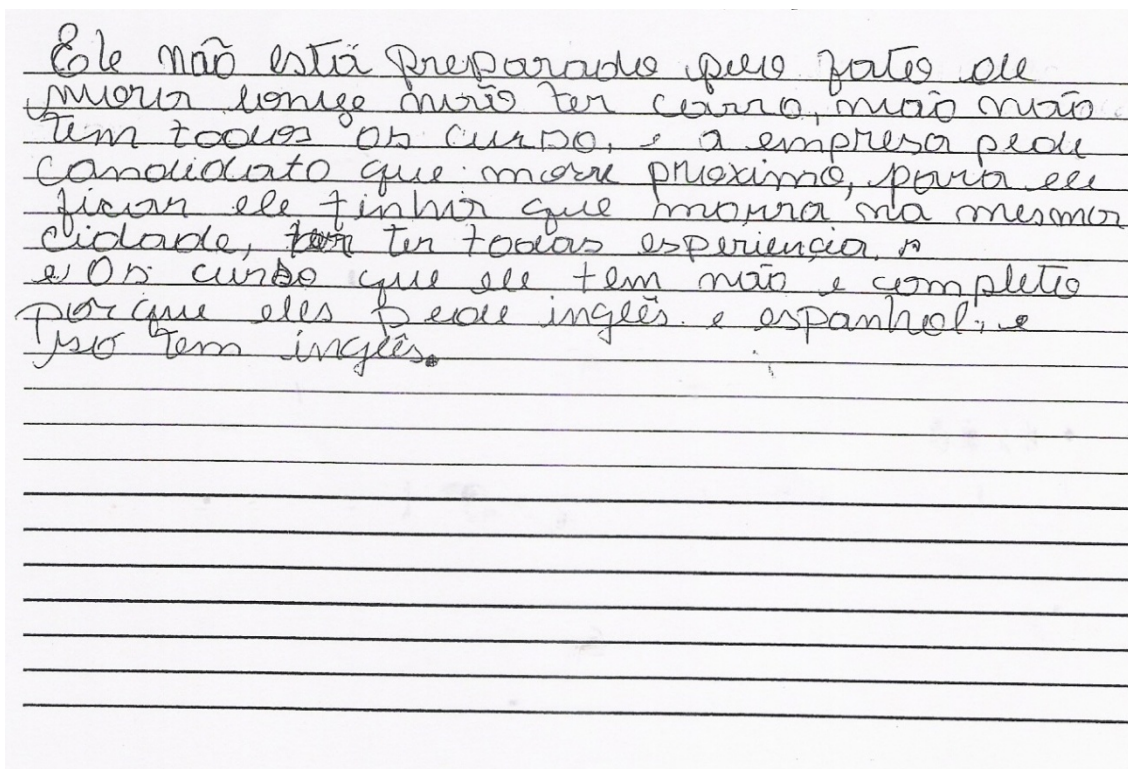 Ele não está preparado pelo fato de
morar longe não ter carro, não não
tem todos os curso, e a empresa pede
candidato que more proximo, para ele
ficar ele tinha que morra na mesma
cidade, ter ter todas esperiencia.
e os curso que ele tem não e completo
porque eles pede inglês e espanhol, e
só tem inglês.